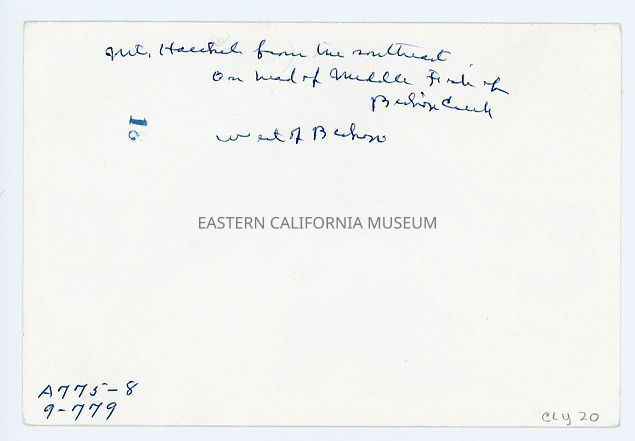 Mt. Haeckel from the southeast
On head of Middle Fork of
Bishop Creek
west of Bishop
16
EASTERN CALIFORNIA MUSEUM
A775-8
9-779
CLY 20